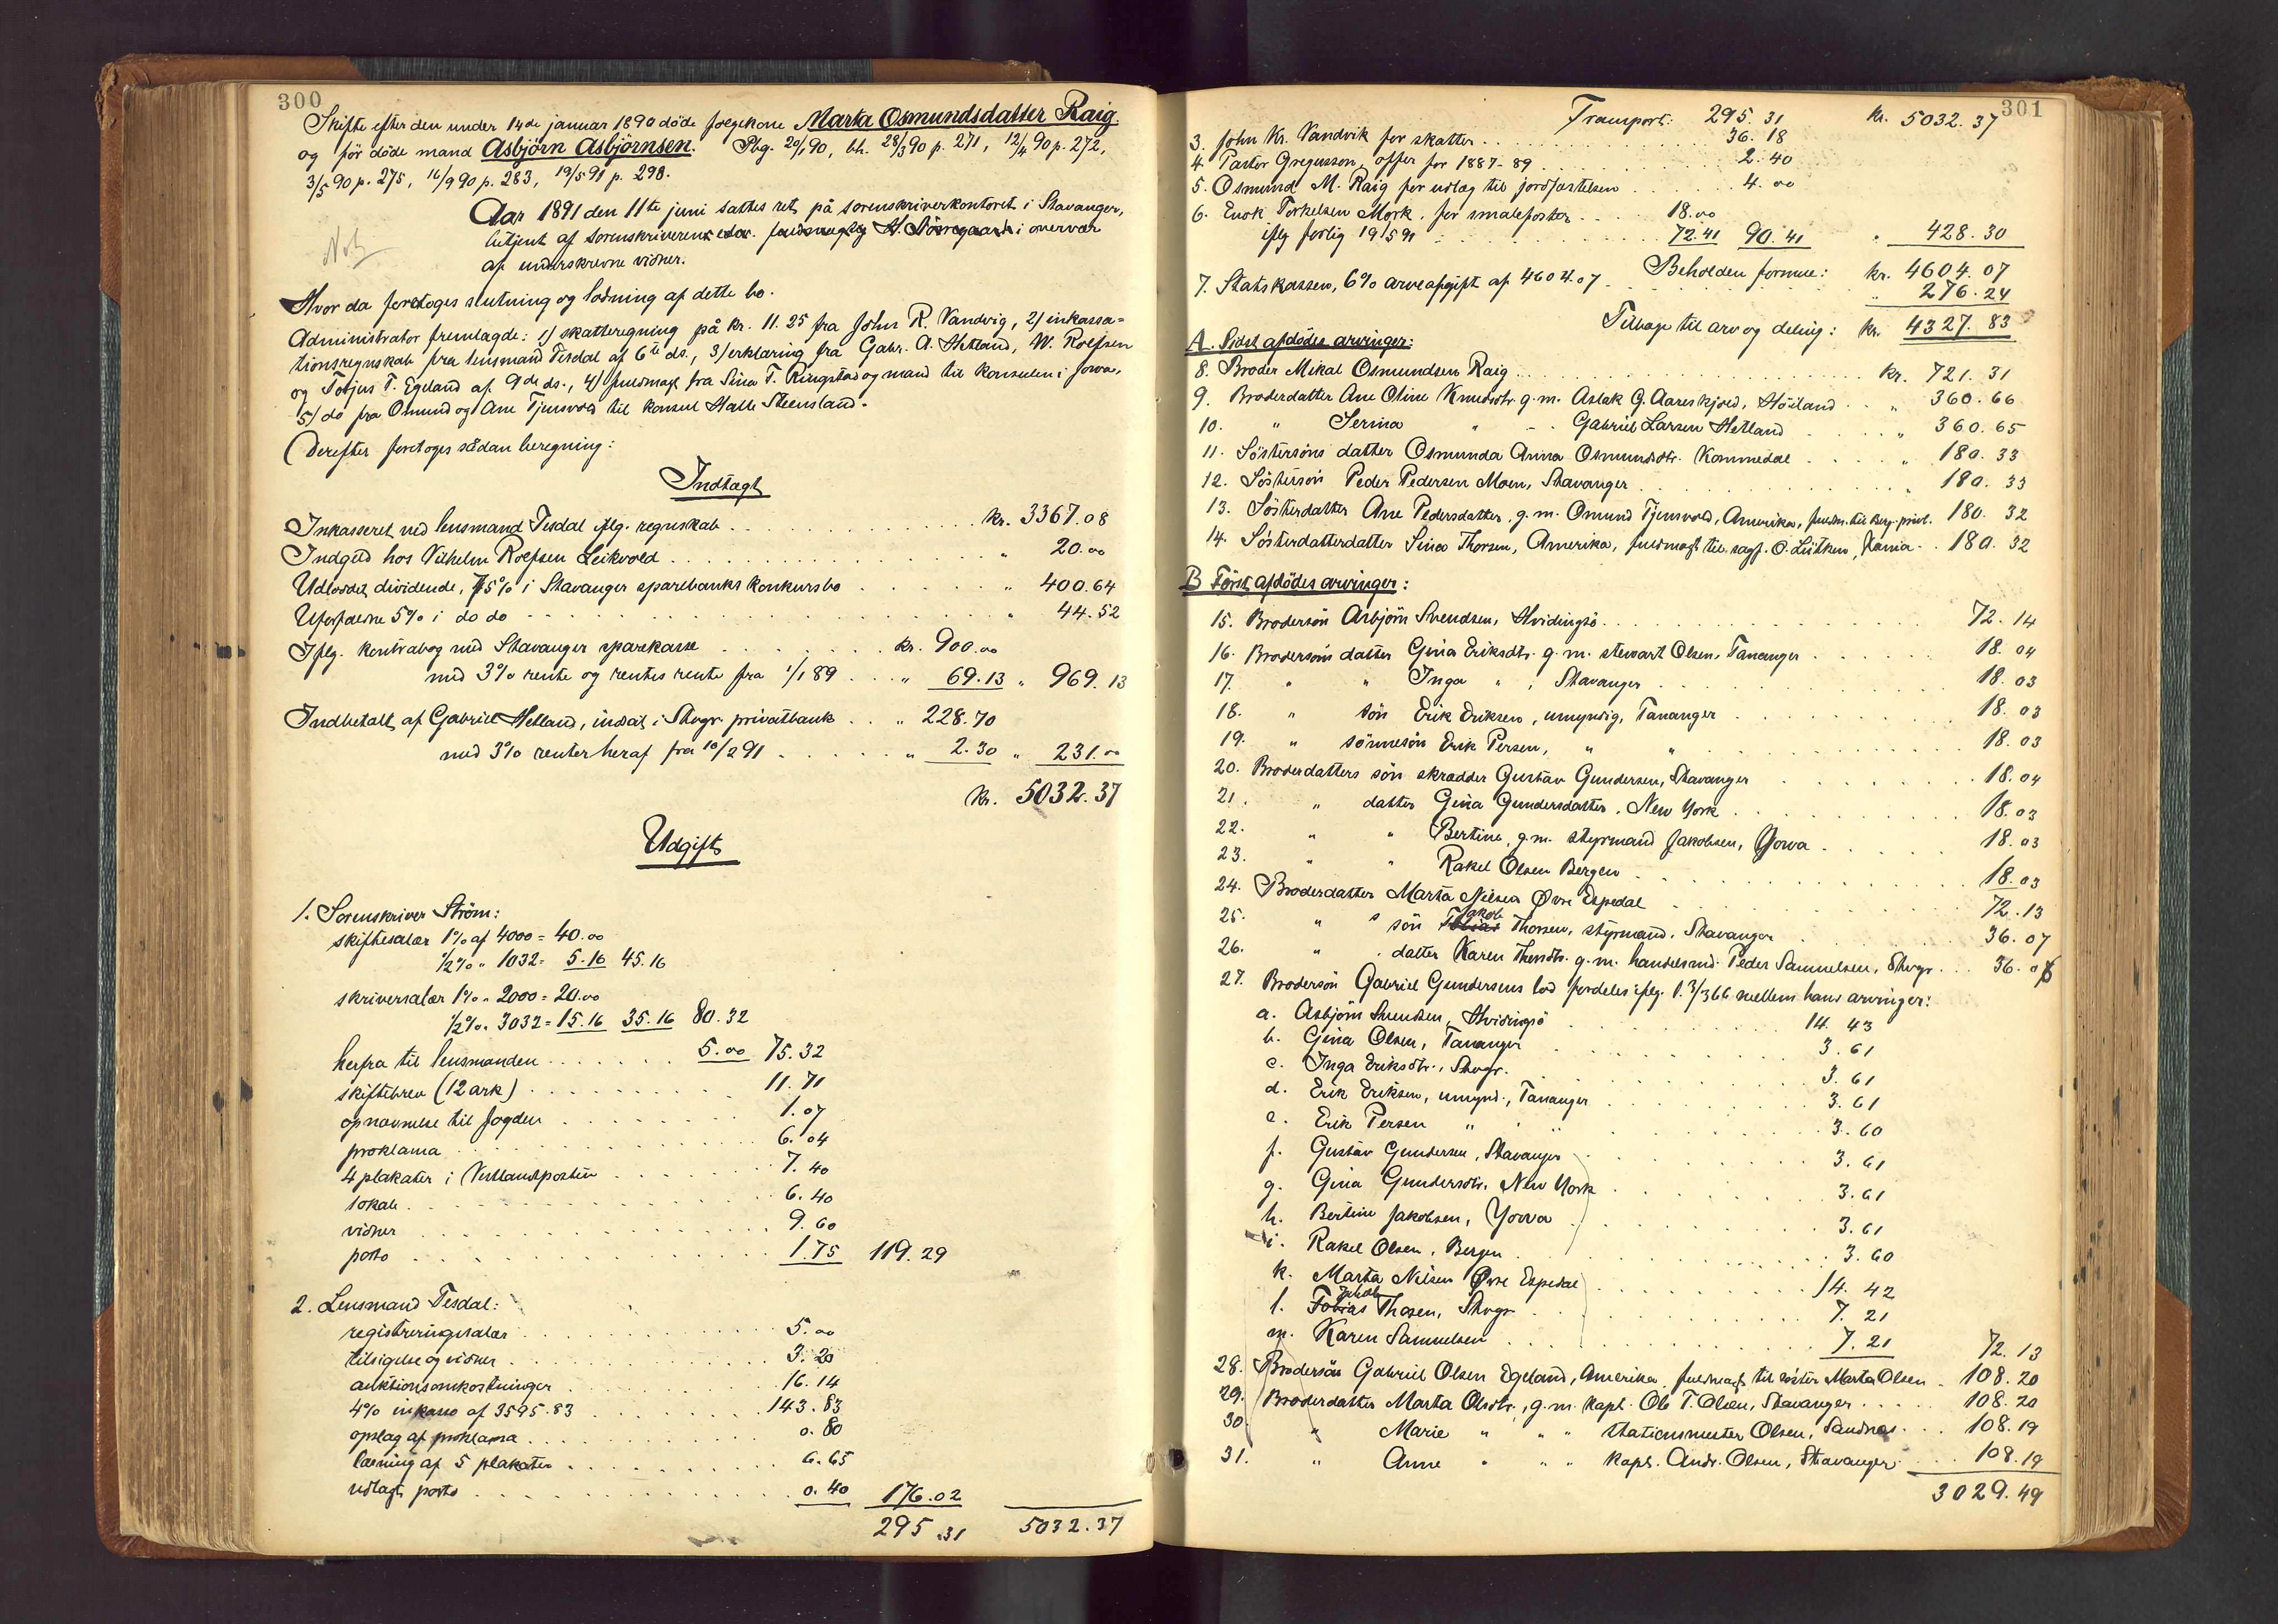 300
Skifte efter den under 14de januar 1890 døde føgekone Marta Osmundsdatter Raig.
og før døde mand Asbjørn Asbjørnsen. Pbg. 20/1 90, bh. 28/3 90 p. 271, 12/4 90 p. 272,
3/5 90 p. 275, 16/9 90 p. 283, 19/5 91 p. 298.
Aar 1891 den 11te juni sattes ret på sorenskriverkontoret i Stavanger,
betjent af sorenskriveren i overvær
af underskrevne vidner.
Hvor da foretoges slutning og lodning af dette bo.
Administrator fremlagde: 1) skatteregning på kr. 11.25 fra John R. Vandvig, 2) inkassa=
tionsregnskab fra lensmand Tisdal af 6te ds., 3) erklæring fra Gabr. A. Hetland, W. Roefsen
og Tobjus T. Egeland af 9de ds., 4) fuldmagt fra Sina T. Ringstad og mand til konsulen i Jowa,
5) do fra Omund og Ane Tjensvold til konsul Halle Steensland.
Derefter foretoges sådan beregning:
Indtægt
Inkasseret ved lensmand Tisdal iflg. regnskab . . . kr. 3367.08
Indgåd hos Vilhelm Roefsen Leikvold . . . " 20.00
Udloddet dividende, 75% i Stavanger sparebanks konkursbo . . . " 400.64
Uforfaldne 5% i do do . . . " 44.52
Iflg. kontrabog med Stavanger sparekasse . . . kr. 900.00
med 3% rente og rentes rente fra 1/1 89 . . " 69.13 " 969.13
Indbetalt af Gabriel Hetland, indsat i Stvgr. privatbank . . " 228.70
med 3% renter heraf fra 10/2 91 . . . " 2.30 " 231.00
kr. 5032.37
Udgift
1. Sorenskriver Ström:
skiftesalær 1% af 4000 = 40.00
1/2% " 1032 = 5.16 45.16
skriversalær 1% " 2000 = 20.00
1/2% " 3032 = 15.16 35.16 80.32
herfra til lensmanden . . . 5.00 75.32
skiftebrev (12 ark) . . . 11.71
opnævnelse til fogden . . . 1.07
proklama . . . 6.04
4 plakater i Vestlandsposten . . . 7.40
lokale . . . 6.40
vidner . . . 9.60
porto . . . 1.75 119.29
2. Lensmand Tisdal:
registreringssalær . . . 5.00
tilsigelse og vidner . . . 3.20
auktionsomkostninger . . . 16.14
4% inkasso af 3595.83 . . . 143.83
opslag af proklama . . . 0.80
læsning af 5 plakater . . . 6.65
udlagt porto . . . 0.40 176.02
295.31 5032.37
301
Transport: 295.31 kr. 5032.37
3. John Kr. Vandvik for skatter . . . 36.18
4. Pastor Gregusson, offer for 1887-89 . . . 2.40
5. Osmund M. Raig for udlæg til jordfæstelsen . . . 4.00
6. Enok Torkelsen Mork, for smaleposter . . . 18.00
iflg. forlig 19/5 91 . . . 72.41 90.41 " 428.30
Beholden formue: kr. 4604.07
7. Statskassen, 6% arveafgift af 4604.07 . . . " 276.24
Tilbage til arv og deling: kr. 4327.83
A. Sidst afdødes arvinger:
8. Broder Mikal Osmundsen Raig . . . kr. 721.31
9. Broderdatter Ane Oline Knudsdtr. g.m. Aslak G. Aareskjold, Höiland . . " 360.66
10. " Serina " - . Gabriel Larsen Hetland . . " 360.65
11. Söstersöns datter Osmunda Anna Osmundsdtr. Kommedal . . . " 180.33
12. Söstersön Peder Pedersen Moen, Stavanger . . . " 180.33
13. Sösterdatter Ane Pedersdatter, g.m. Omund Tjensvold, Amerika, fuldm. til Berg-privl. 180.32
14. Sösterdatterdatter Sina Thorsen, Amerika, fuldmagt til sagf. O. Lütken, Jania . . 180.32
B Först afdödes arvinger:
15. Brodersön Asbjörn Svendsen, Hvidingsö . . . 72.14
16. Brodersöns datter Gina Eriksdtr. g.m. stewart Olsen, Tananger . . . 18.04
17. " " Inga " , Stavanger . . . 18.03
18. " sön Erik Eriksen, umyndig, Tananger . . . 18.03
19. " sönnesön Erik Persen, " " . . . 18.03
20. Broderdatters sön skrædder Gustav Gundersen, Stavanger . . . 18.04
21. " datter Gina Gundersdatter, New York . . . 18.03
22. " " Bertine, g.m. styrmand Jakobsen, Yowa . . . 18.03
23. " " Rakel Olsen Bergen . . . 18.03
24. Broderdatter Marta Nilsen Øvre Espedal . . . 72.13
25. " s sön Jakob Thorsen, styrmand, Stavanger . . . 36.07
26. " datter Karen Thorsdtr. g.m. handelsmd. Peder Samuelsen, Stvgr. . . 36.06
27. Brodersön Gabriel Gundersens lod fordeles iflg. l. 3/3 66 mellem hans arvinger:
a. Asbjörn Svendsen, Hvidingsö . . . 14.43
b. Gina Olsen, Tananger . . . 3.61
c. Inga Eriksdtr., Stvgr. . . . 3.61
d. Erik Eriksen, umynd., Tananger . . . 3.61
e. Erik Persen " " . . . 3.60
f. Gustav Gundersen, Stavanger . . . 3.61
g. Gina Gundersdtr. New York . . . 3.61
h. Bertine Jakobsen, Yowa . . . 3.61
i. Rakel Olsen, Bergen . . . 3.60
k. Marta Nilsen Øvre Espedal . . . 14.42
l. Jakob Thosen, Stvgr. . . . 7.21
m. Karen Samuelsen . . . 7.21 72.13
28. Brodersön Gabriel Olsen Egeland, Amerika, fuldmagt til söster Marta Olsen . 108.20
29. Broderdatter Marta Olsdtr., g.m. kapt. Ole T. Olsen, Stavanger . . . 108.20
30. " Marie " " " stationsmester Olsen, Sandnæs . . . 108.19
31. " Anne " " " kapt. Andr. Olsen, Stavanger . . . 108.19
3029.49